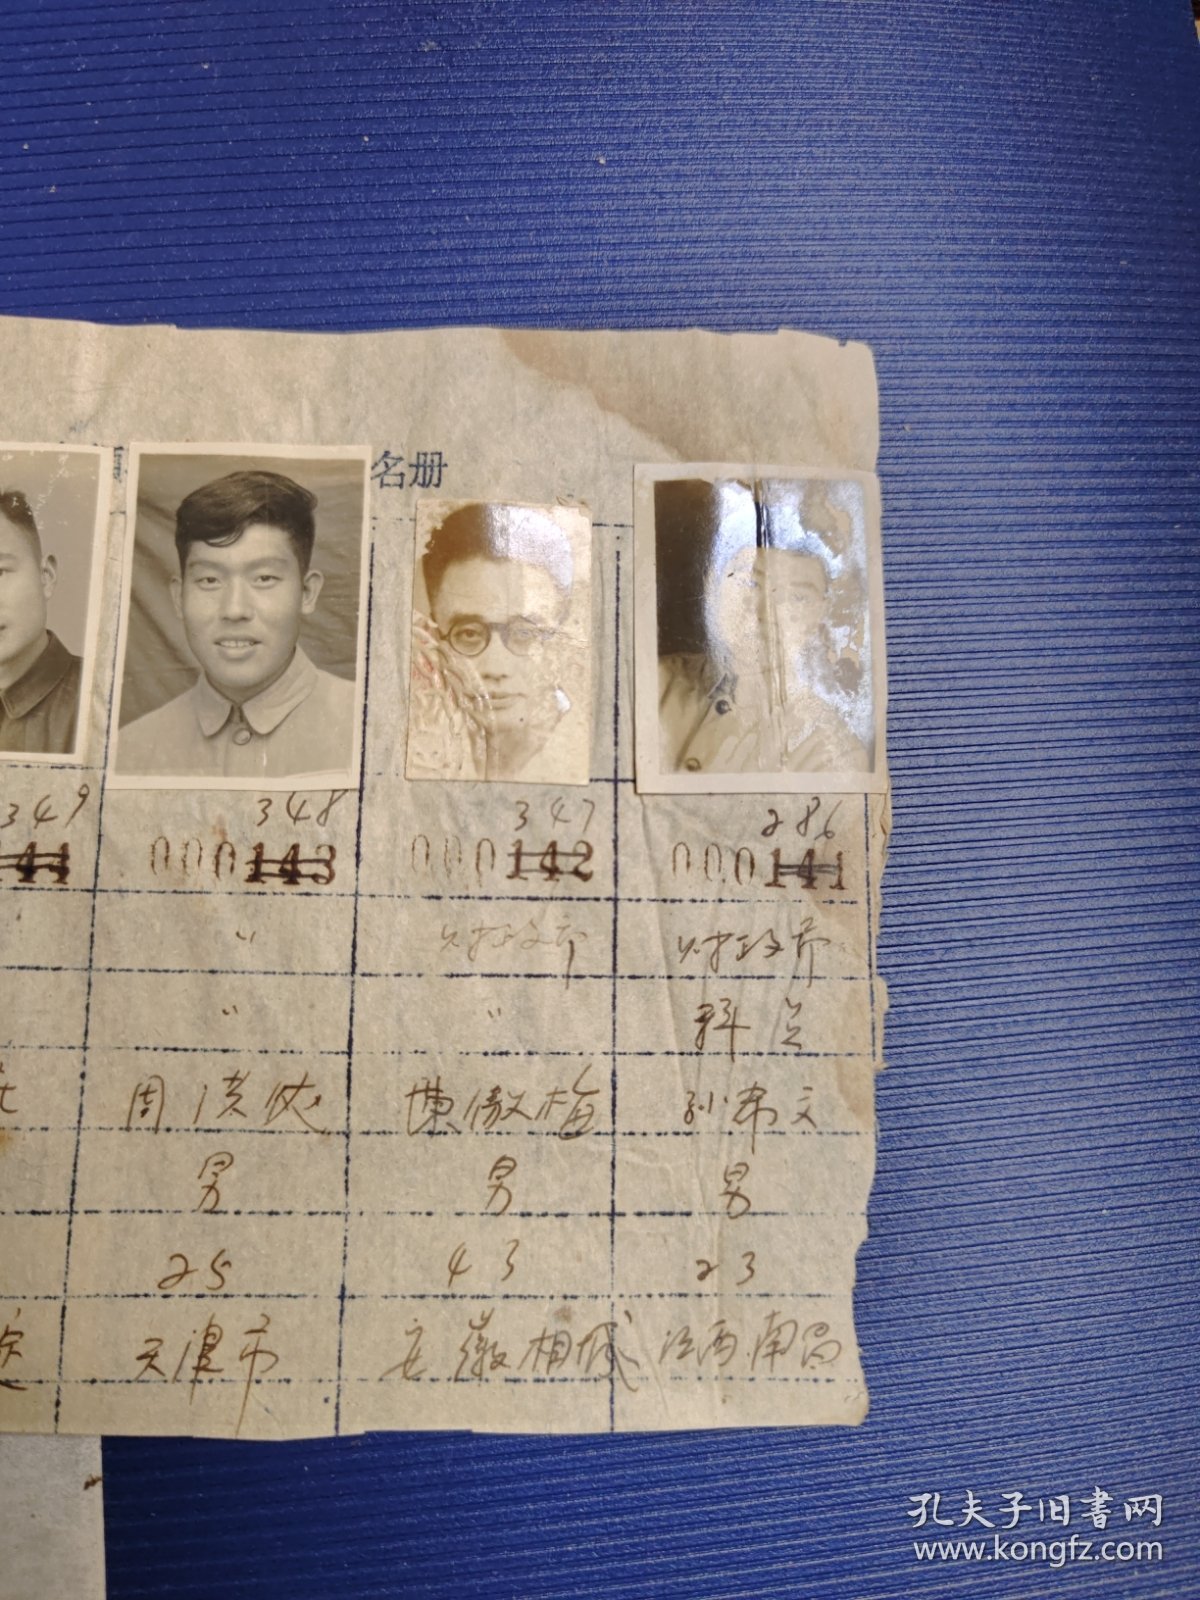 名册
349 348 347 286
144 000143 000142 000141
〃 财政部 财政部
〃 〃 科员
周洪 陈傲梅 孙希文
男 男 男
25 43 23
天津市 安徽相城 江西南昌
孔夫子旧书网
www.kongfz.com